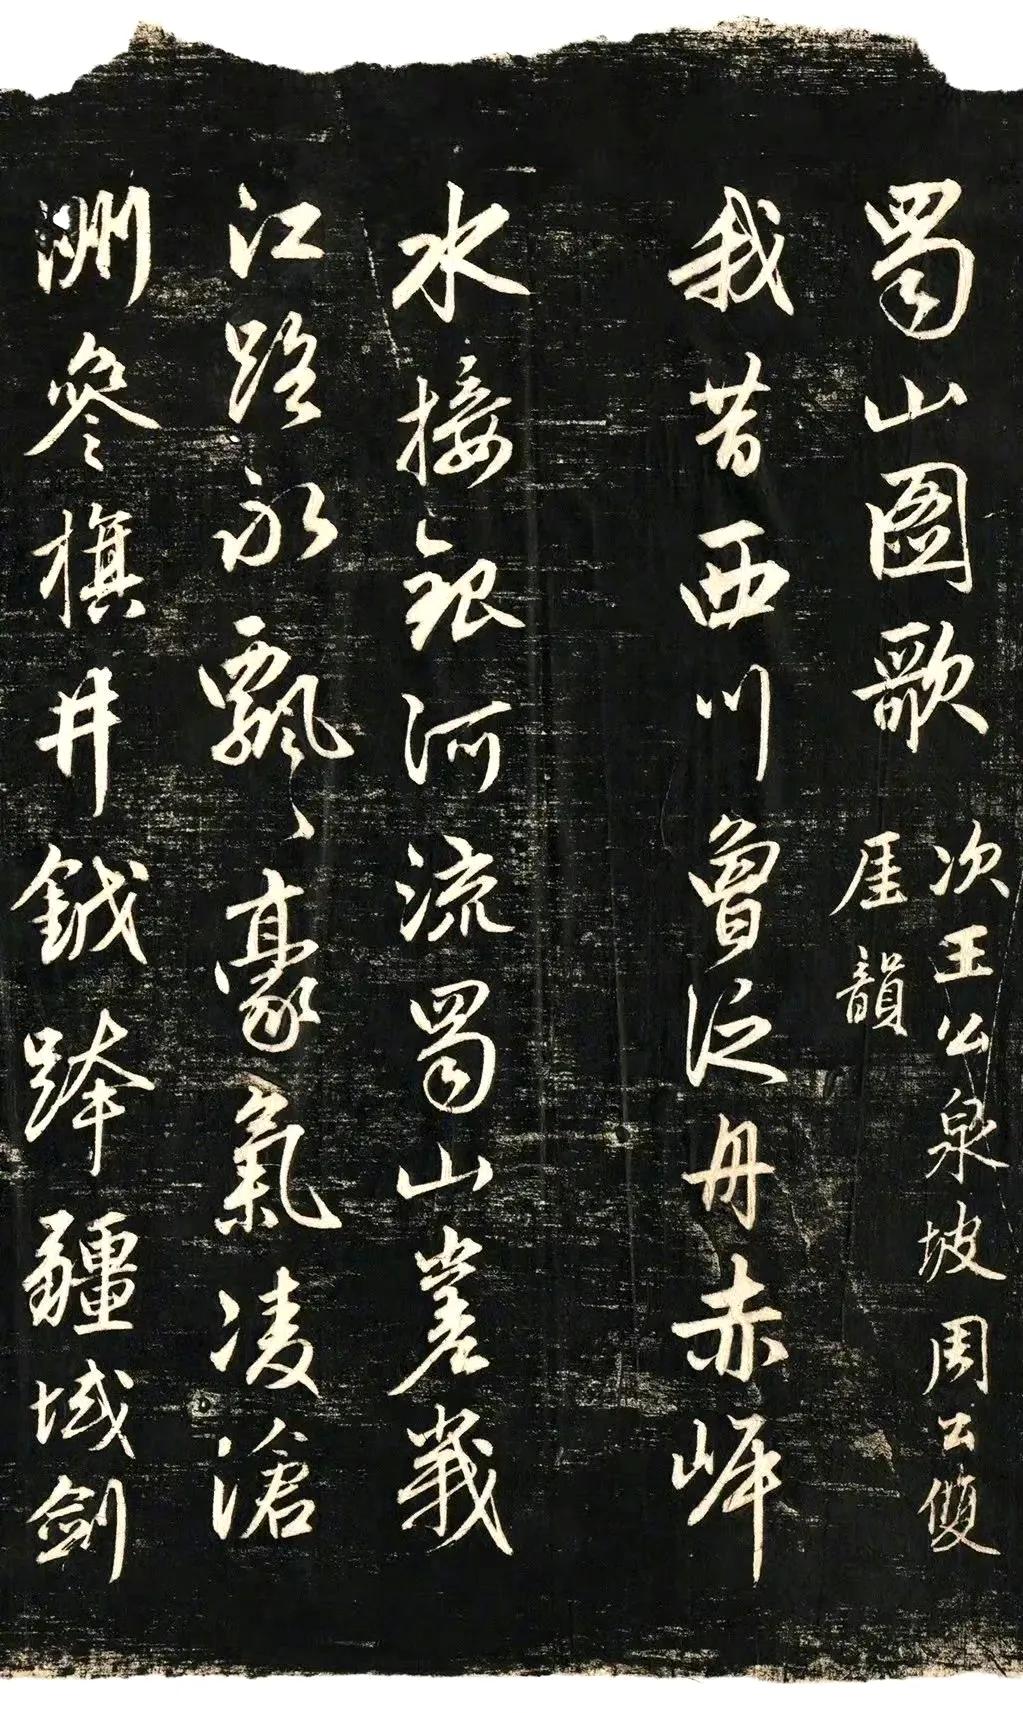 蜀山圖歌
次王公泉坡周公雙
厓韻
我昔西川曾泛舟赤岬
水接銀河流蜀山嵳峩
江路永飄〻豪氣凌滄
洲參旗井鉞跨疆域劍